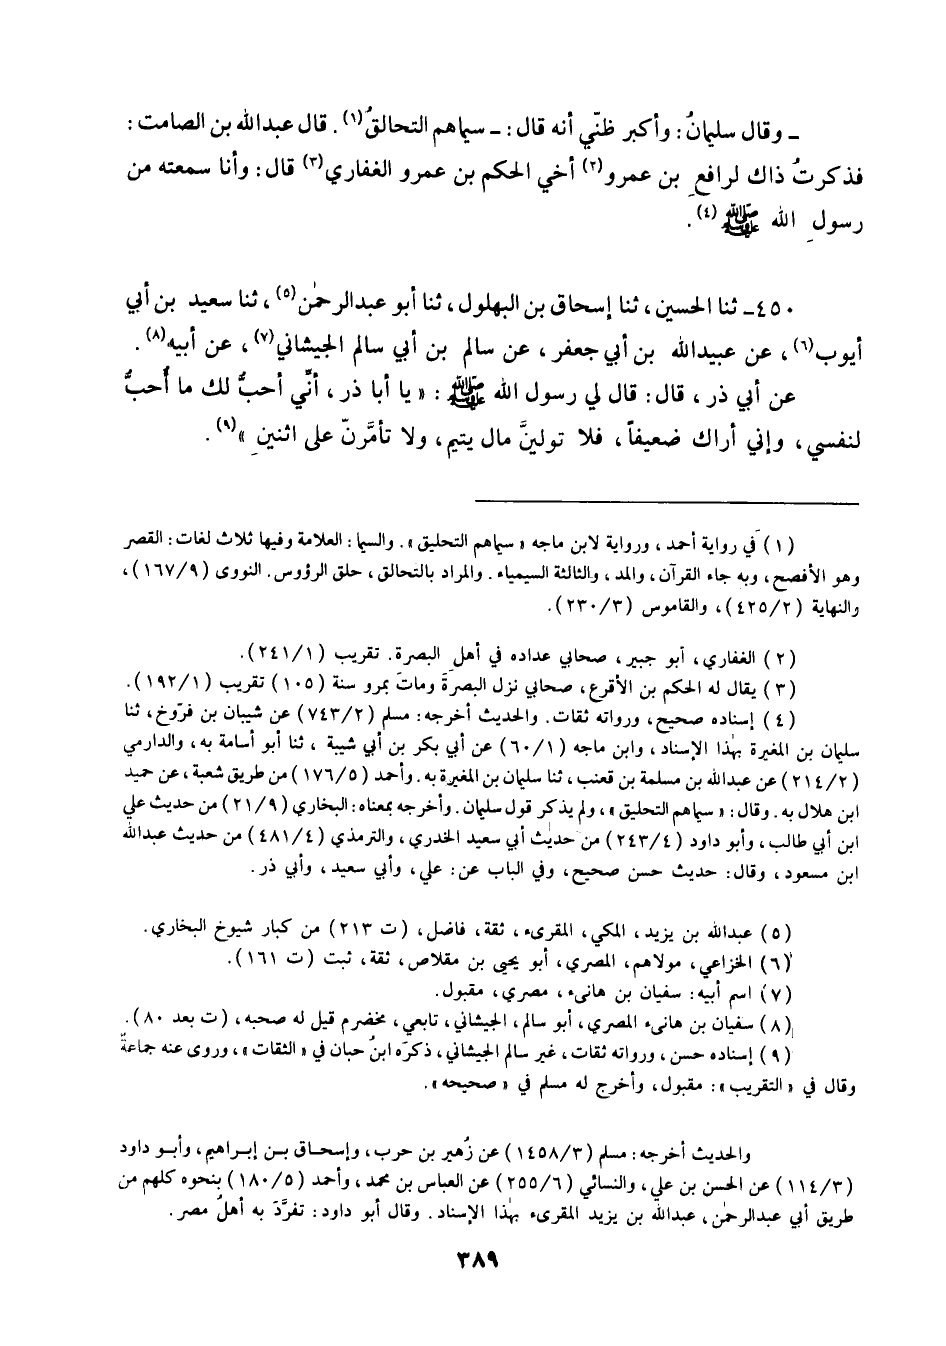 ـ وقال سليمانُ: وأكبر ظنّي أنه قال: ـ سيماهم التحالقُ(١). قال عبدالله بن الصامت:
فذكرتُ ذاك لرافعِ بن عمرو(٢) أخي الحكم بن عمرو الغفاري(٣) قال: وأنا سمعته من
رسولِ الله ﷺ (٤).
٤٥٠ـ ثنا الحسين، ثنا إسحاق بن البهلول، ثنا أبو عبدالرحمٰن(٥)، ثنا سعيد بن أبي
أيوب(٦)، عن عبيدالله بن أبي جعفر، عن سالم بن أبي سالم الجيشاني(٧)، عن أبيه(٨).
عن أبي ذر، قال: قال لي رسول الله ﷺ: « يا أبا ذر، أنّي أحبُّ لك ما أُحبُّ
لنفسي، وإني أراك ضعيفاً، فلا تولينَّ مال يتيم، ولا تأمَّرنّ على اثنينِ »(٩).
(١) في رواية أحمد، ورواية لابن ماجه « سيماهم التحليق ». والسيما: العلامة وفيها ثلاث لغات: القصر
وهو الأفصح، وبه جاء القرآن، والمد، والثالثة السيمياء. والمراد بالتحالق، حلق الرؤوس. النووى (١٦٧/٩)،
والنهاية (٤٢٥/٢)، والقاموس (٢٣٠/٣).
(٢) الغفاري، أبو جبير، صحابي عداده في أهلِ البصرة. تقريب (٢٤١/١).
(٣) يقال له الحكم بن الأقرع، صحابي نزل البصرةَ وماتَ بمرو سنة (١٠٥) تقريب (١٩٢/١).
(٤) إسناده صحيح، ورواته ثقات. والحديث أخرجه: مسلم (٧٤٣/٢) عن شيبان بن فرّوخ، ثنا
سليمان بن المغيرة بهٰذا الإسناد، وابن ماجه (٦٠/١) عن أبي بكر بن أبي شيبة، ثنا أبو أسامة به، والدارمي
(٢١٤/٢) عن عبدالله بن مسلمة بن قعنب، ثنا سليمان بن المغيرة به. وأحمد (١٧٦/٥) من طريق شعبة، عن حميد
ابن هلال به. وقال: « سيماهم التحليق »، ولم يذكر قول سليمان. وأخرجه بمعناه: البخاري (٢١/٩) من حديث علي
ابن أبي طالب، وأبو داود (٢٤٣/٤) من حديث أبي سعيد الخدري، والترمذي (٤٨١/٤) من حديث عبدالله
ابن مسعود، وقال: حديث حسن صحيح، وفي الباب عن: علي، وأبي سعيد، وأبي ذر.
(٥) عبدالله بن يزيد، المكي، المقرىء، ثقة، فاضل، (ت ٢١٣) من كبار شيوخ البخاري.
(٦) الخزاعي، مولاهم، المصري، أبو يحيى بن مقلاص، ثقة، ثبت (ت ١٦١).
(٧) اسم أبيه: سفيان بن هانىء، مصري، مقبول.
(٨) سفيان بن هانىء المصري، أبو سالم، الجيشاني، تابعي، مخضرم قيل له صحبه، (ت بعد ٨٠).
(٩) إسناده حسن، ورواته ثقات، غير سالم الجيشاني، ذكره ابنُ حبان في « الثقات »، وروى عنه جماعةٌ
وقال في « التقريب »: مقبول، وأخرج له مسلم في « صحيحه ».
والحديث أخرجه: مسلم (١٤٥٨/٣) عن زُهير بن حرب، وإسحاق بن إبراهيم، وأبو داود
(١١٤/٣) عن الحسن بن علي، والنسائي (٢٥٥/٦) عن العباس بن محمد، وأحمد (١٨٠/٥) بنحوه كلهم من
طريق أبي عبدالرحمٰن، عبدالله بن يزيد المقرىء بهٰذا الإسناد. وقال أبو داود: تفرَّدَ به أهلُ مصر.
٣٨٩